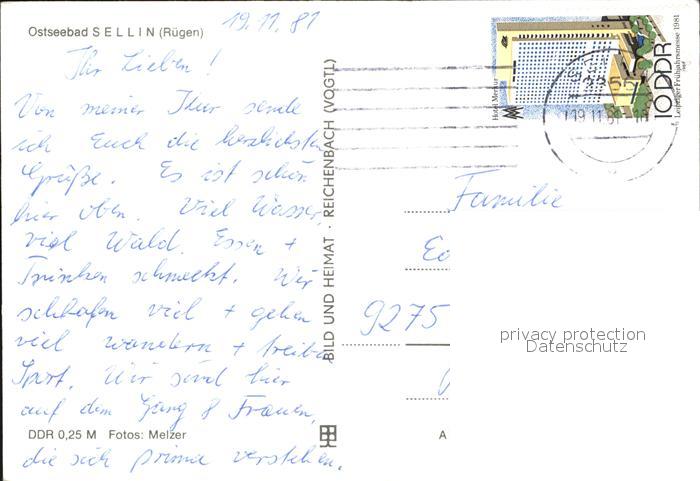 Ostseebad SELLIN (Rügen)
19.11.81
Ihr Lieben!
Von meiner Kur sende
ich Euch die herzlichsten
Grüße. Es ist schön
hier oben. Viel Wasser,
viel Wald. Essen +
Trinken schmeckt. Wir
schlafen viel + gehen
viel wandern + treiben
Sport. Wir sind hier
auf dem Gang 8 Frauen,
die sich prima verstehen.
DDR 0,25 M Fotos: Melzer
BILD UND HEIMAT · REICHENBACH (VOGTL)
Hotel Merkur
10 DDR
Leipziger Frühjahrsmesse 1981
2355
19.11.81
Familie
9275
privacy protection
Datenschutz
A